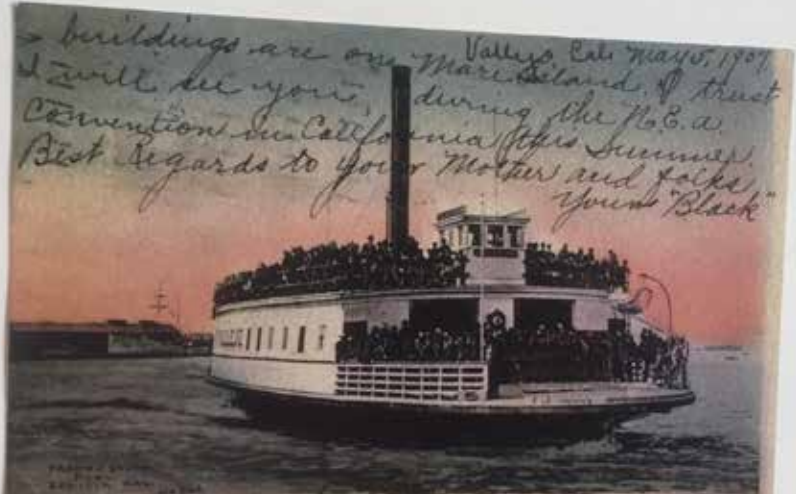 Vallejo, Cal. May 5, 1907
buildings are on Mare Island. I trust
I will see you, during the N.E.a
Convention in California this Summer.
Best Regards to your Mother and folks.
Yours "Black"
VALLEJO